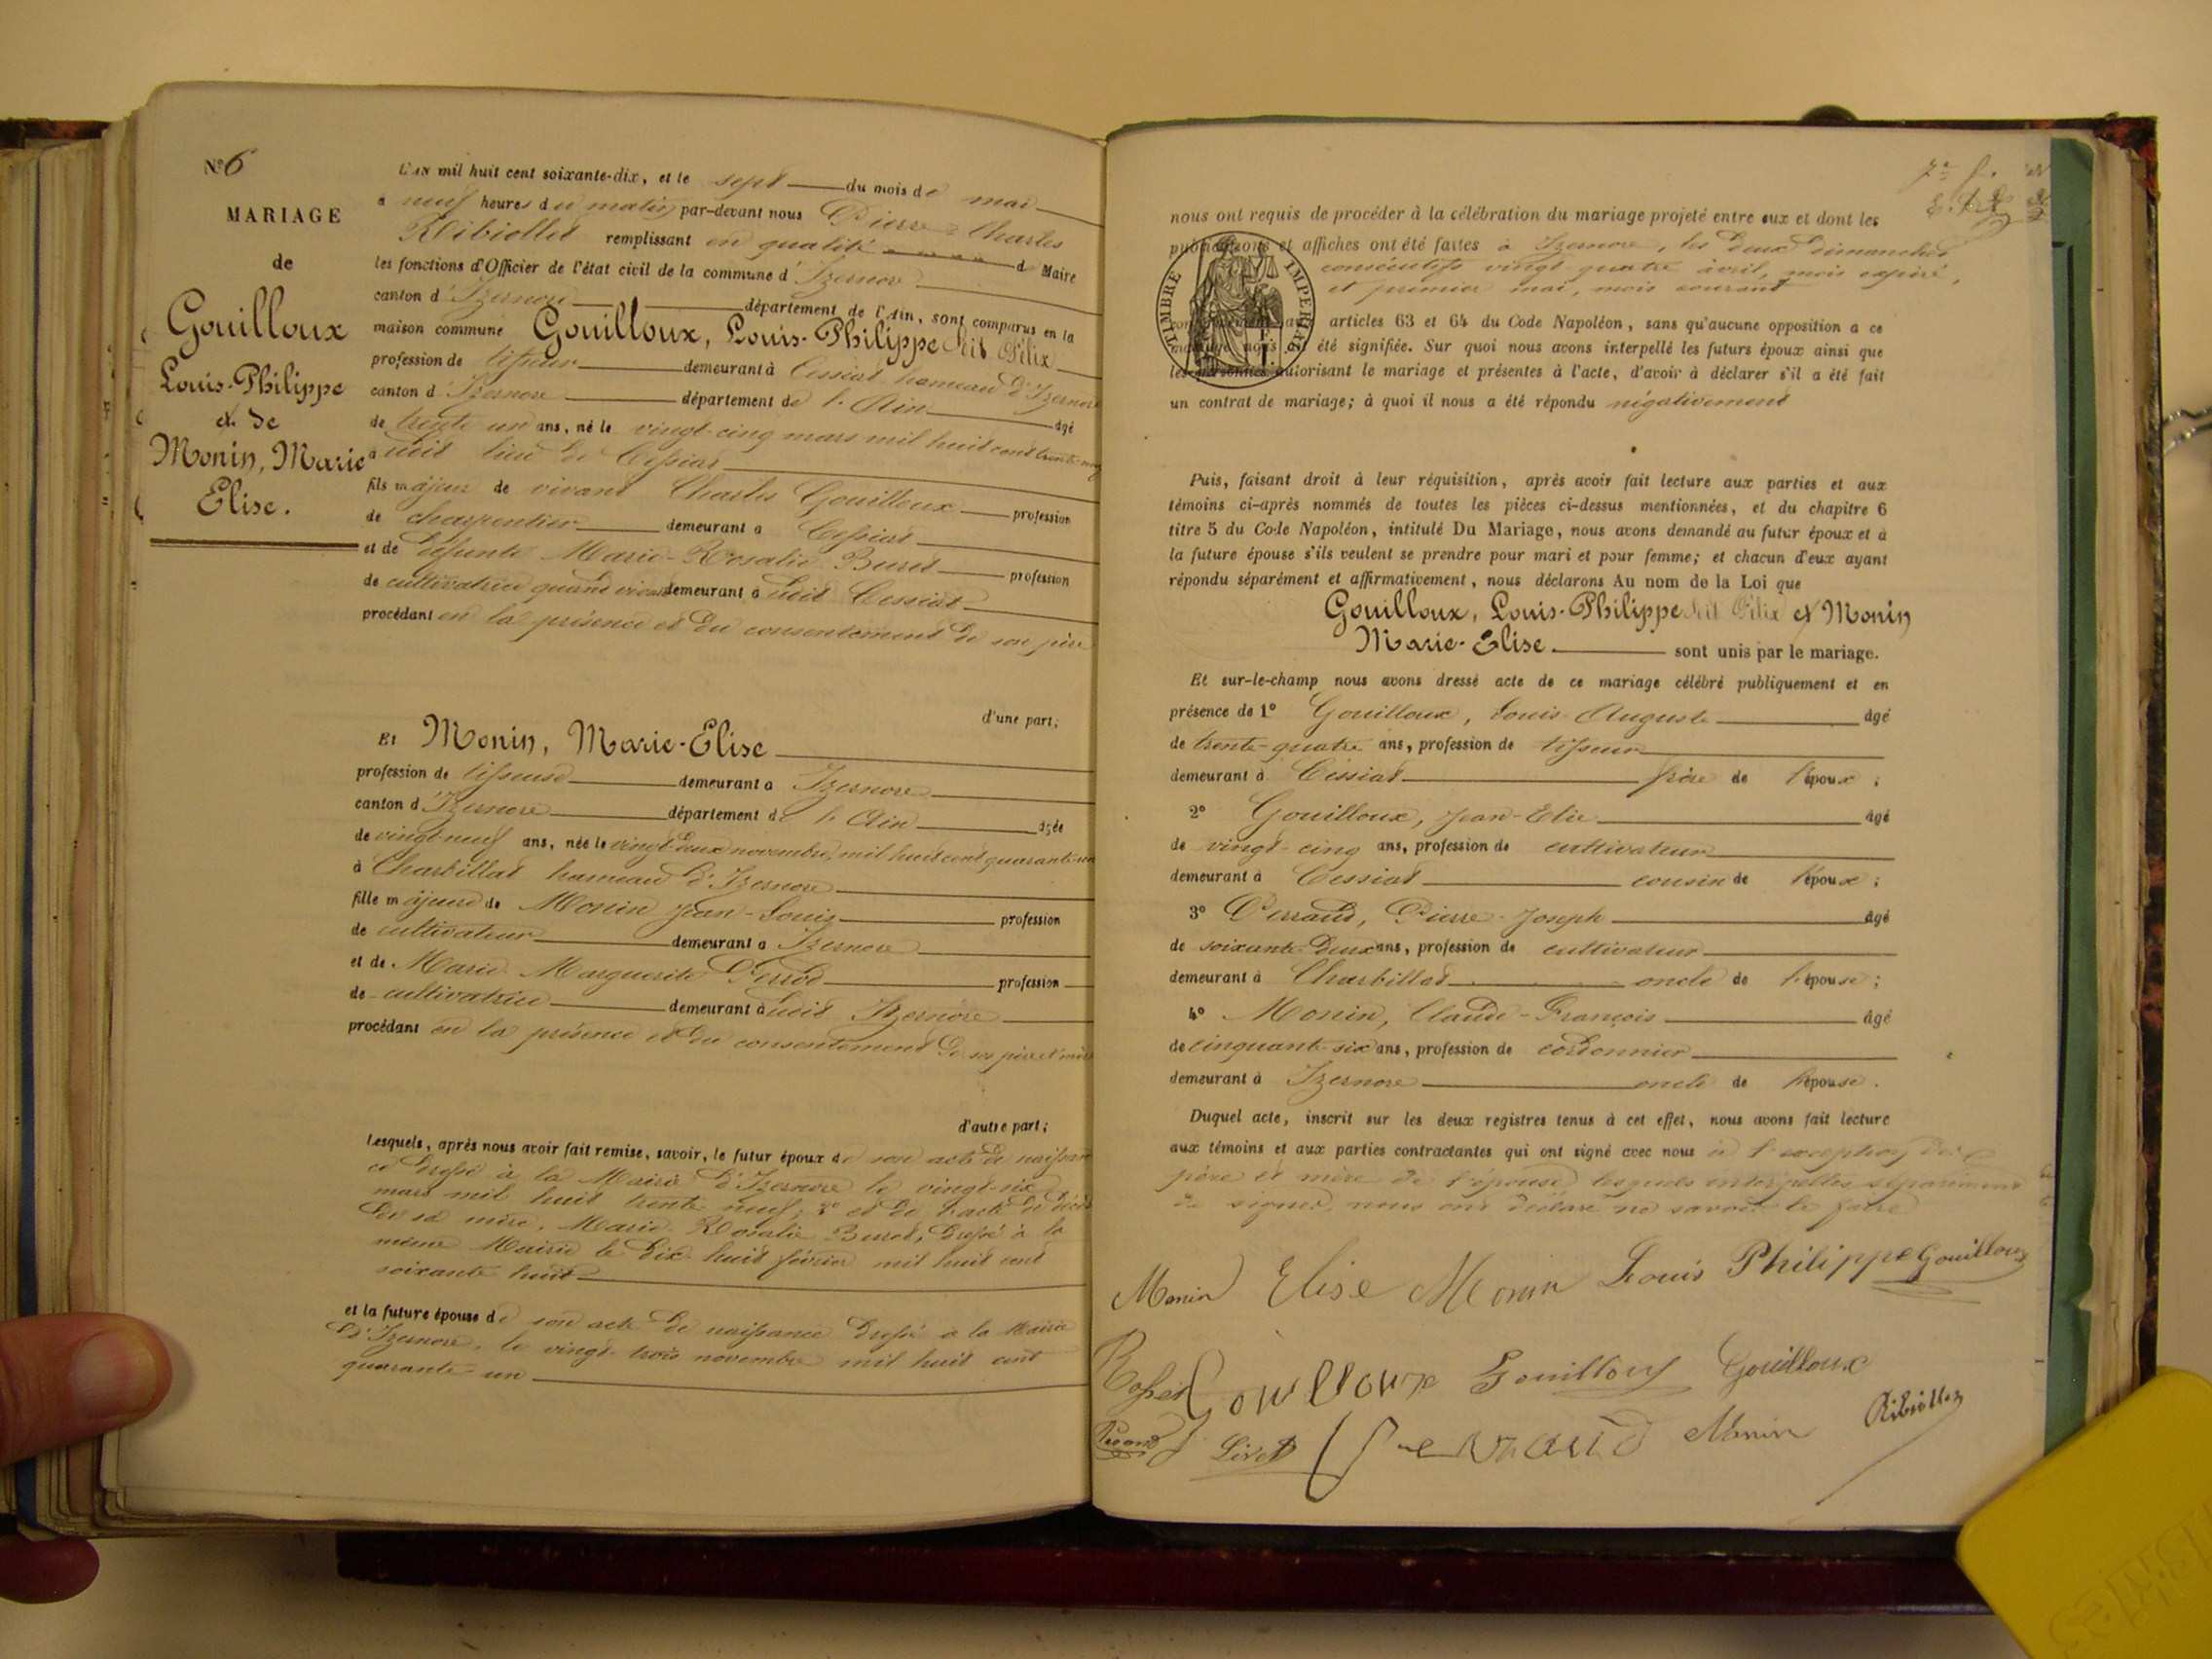 N° 6
MARIAGE
de
Gouilloux
Louis-Philippe
et de
Monin, Marie
Elise.
L'AN mil huit cent soixante-dix, et le sept du mois de mai
à neuf heures du matin par-devant nous Pierre-Charles
Ribiollet remplissant en qualité de Maire
les fonctions d'Officier de l'état civil de la commune d'Izernore
canton d'Izernore département de l'Ain, sont comparus en la
maison commune Gouilloux, Louis-Philippe dit Félix
profession de tisseur demeurant à Cessiat hameau d'Izernore
canton d'Izernore département de l'Ain âgé
de trente un ans, né le vingt-cinq mars mil huit cent trente-neuf
à udit lieu de Cessiat
fils majeur de vivant Charles Gouilloux profession
de charpentier demeurant à Cessiat
et de défunte Marie-Rosalie Buret profession
de cultivatrice quand vivait demeurant à udit Cessiat
procédant en la présence et du consentement de son père
d'une part;
Et Monin, Marie-Elise
profession de tisseuse demeurant à Izernore
canton d'Izernore département de l'Ain âgée
de vingt-neuf ans, née le vingt-deux novembre, mil huit cent quarante-un
à Charbillat hameau d'Izernore
fille majeure de Monin Jean-Louis profession
de cultivateur demeurant à Izernore
et de Marie Marguerite profession
de cultivatrice demeurant à udit Izernore
procédant en la présence et du consentement de ses père et mère
d'autre part;
Lesquels, après nous avoir fait remise, savoir, le futur époux de son acte de naissan
ce dressé à la Mairie d'Izernore le vingt-six
mars mil huit trente neuf; 2° et de l'acte de décès
de sa mère, Marie-Rosalie Buret, dressé à la
même Mairie le dix-huit février mil huit cent
soixante huit
et la future épouse de son acte de naissance dressé à la Mairie
d'Izernore, le vingt-trois novembre mil huit cent
quarante-un
nous ont requis de procéder à la célébration du mariage projeté entre eux et dont les
publications et affiches ont été faites à Izernore, les deux dimanches
consécutifs vingt-quatre avril, mois expiré,
et premier mai, mois courant
TIMBRE IMPERIAL
articles 63 et 64 du Code Napoléon, sans qu'aucune opposition a ce
mariage nous ait été signifiée. Sur quoi nous avons interpellé les futurs époux ainsi que
les personnes autorisant le mariage et présentes à l'acte, d'avoir à déclarer s'il a été fait
un contrat de mariage; à quoi il nous a été répondu négativement
Puis, faisant droit à leur réquisition, après avoir fait lecture aux parties et aux
témoins ci-après nommés de toutes les pièces ci-dessus mentionnées, et du chapitre 6
titre 5 du Code Napoléon, intitulé Du Mariage, nous avons demandé au futur époux et à
la future épouse s'ils veulent se prendre pour mari et pour femme; et chacun d'eux ayant
répondu séparément et affirmativement, nous déclarons Au nom de la Loi que
Gouilloux, Louis-Philippe dit Félix et Monin
Marie-Elise sont unis par le mariage.
Et sur-le-champ nous avons dressé acte de ce mariage célébré publiquement et en
présence de 1° Gouilloux, Louis Auguste âgé
de trente-quatre ans, profession de tisseur
demeurant à Cessiat frère de l'époux;
2° Gouilloux, Jean-Elie âgé
de vingt-cinq ans, profession de cultivateur
demeurant à Cessiat cousin de l'époux;
3° Perraud, Pierre-Joseph âgé
de soixante-deux ans, profession de cultivateur
demeurant à Charbillat oncle de l'épouse;
4° Monin, Claude-François âgé
de cinquante-six ans, profession de cordonnier
demeurant à Izernore oncle de l'épouse.
Duquel acte, inscrit sur les deux registres tenus à cet effet, nous avons fait lecture
aux témoins et aux parties contractantes qui ont signé avec nous à l'exception des
père et mère de l'épouse lesquels interpellés séparément
de signer, nous ont déclaré ne savoir le faire
Monin Elise Monin Louis Philippe Gouilloux
Gouilloux Gouilloux Gouilloux
Livet Perraud Monin Ribiollet